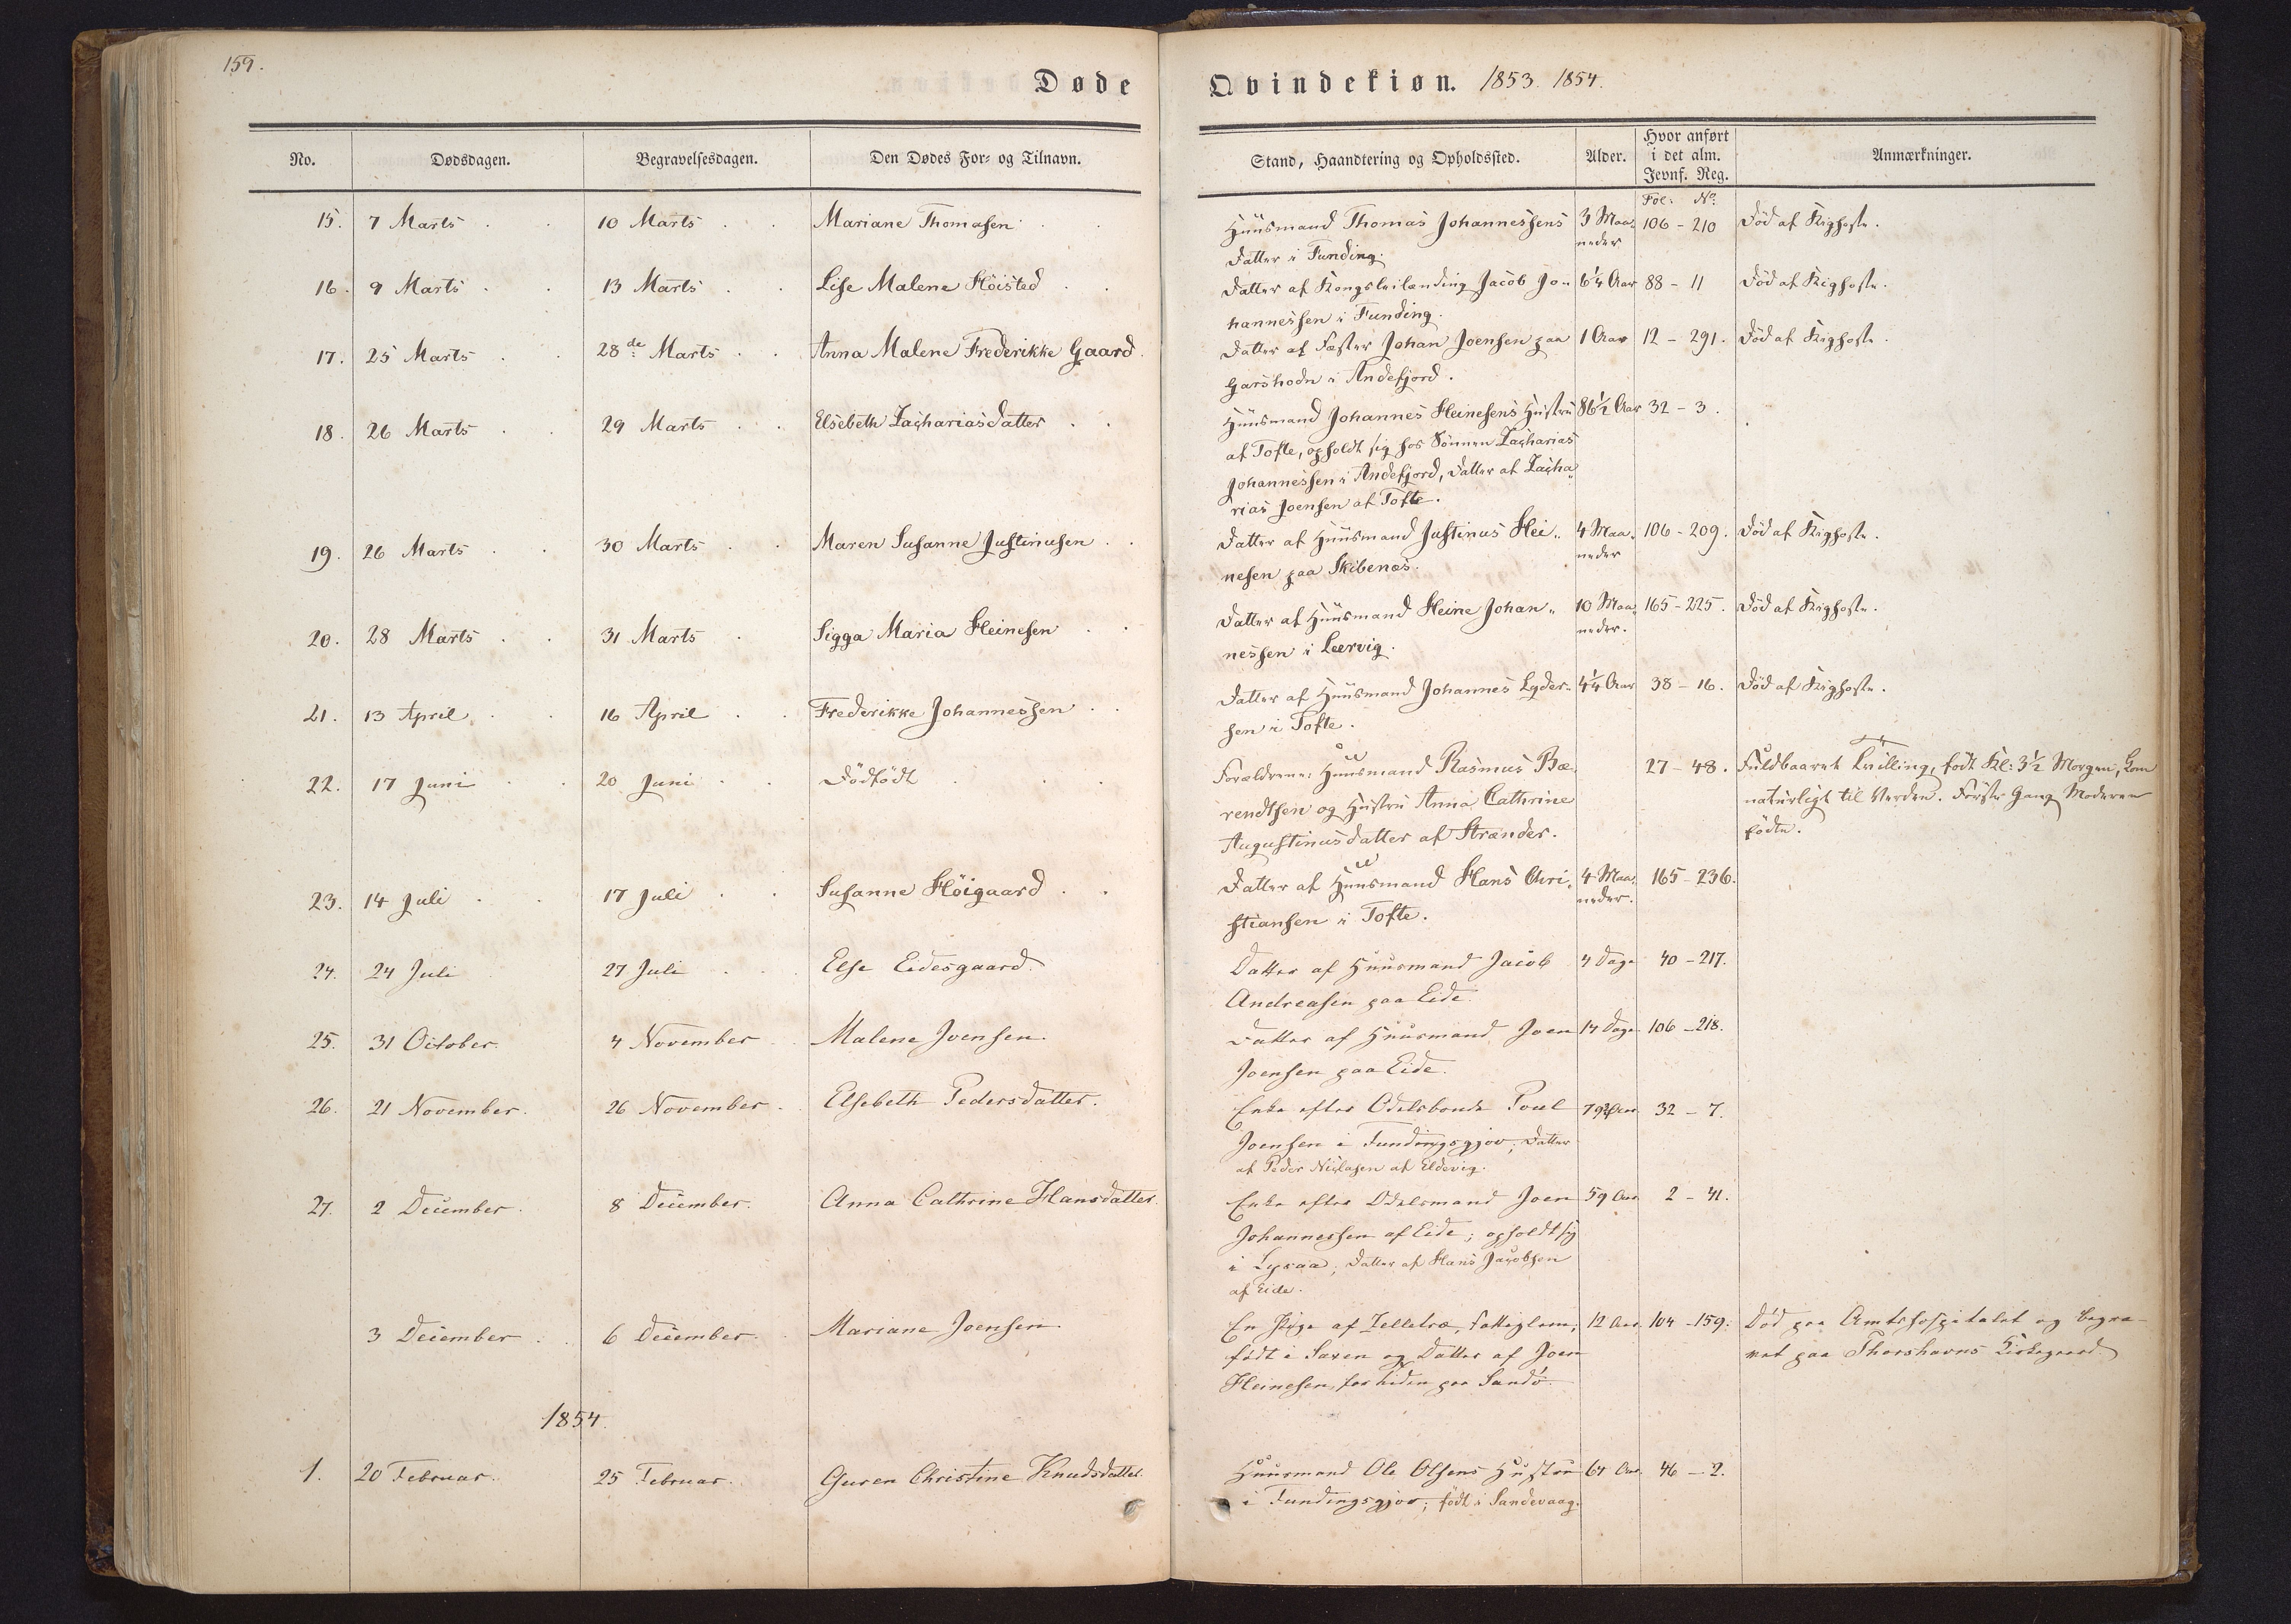 159.
Døde
Qvindekiøn. 1853. 1854.
No. Dødsdagen. Begravelsesdagen. Den Dødes For- og Tilnavn. Stand, Haandtering og Opholdssted. Alder. Hvor anført i det alm. Jevnf. Reg. Anmærkninger.
Fol: No.
15. 7 Marts 10 Marts Mariane Thomasen Huusmand Thomas Johannessens 3 Maa- 106 - 210 Død af Kighoste.
Datter i Funding. neder
16. 9 Marts 13 Marts Lise Malene Höisted Datter af Kongsleilænding Jacob Jo- 6¼ Aar 88 - 11 Død af Kighoste.
hannessen i Funding.
17. 25 Marts 28de Marts Anna Malene Frederikke Gaard Datter af Fæster Johan Joensen paa 1 Aar 12 - 291. Død af Kighoste.
Garshodn i Andefjord.
18. 26 Marts 29 Marts Elsebeth Zachariasdatter Huusmand Johannes Heinesens Hustru 86½ Aar 32 - 3.
af Tofte, opholdt sig hos Sønnen Zacharias
Johannessen i Andefjord, Datter af Zacha-
rias Joensen af Tofte.
19. 26 Marts 30 Marts Maren Susanne Justinusen Datter af Huusmand Justinus Hei- 4 Maa- 106 - 209. Død af Kighoste.
nesen paa Skibenæs. neder
20. 28 Marts 31 Marts Sigga Maria Heinesen Datter af Huusmand Heine Johan- 10 Maa- 165 - 225. Død af Kighoste.
nessen i Leervig. neder.
21. 13 April 16 April Frederikke Johannessen Datter af Huusmand Johannes Lyder- 4¼ Aar 38 - 16. Død af Kighoste.
sen i Tofte.
22. 17 Juni 20 Juni Dødfødt Forældrene: Huusmand Rasmus Bæ- 27 - 48. Fuldbaaret Tvilling, født Kl: 3½ Morgen, kom
rendtsen og Hustru Anna Cathrine naturligt til Verden. Første Gang Moderen
Augustinusdatter af Strænder. fødte.
23. 14 Juli 17 Juli Susanne Höigaard Datter af Huusmand Hans Chri- 4 Maa- 165 - 236.
stiansen i Tofte. neder.
24. 24 Juli 27 Juli Else Eidesgaard. Datter af Huusmand Jacob 4 Dage 40 - 217.
Andreasen paa Eide.
25. 31 October. 4 November Malene Joensen. Datter af Huusmand Joen 14 Dage 106 - 218.
Joensen paa Eide.
26. 21 November. 26 November. Elsebeth Pedersdatter. Enke efter Odelsbonde Poul 32 - 7.
Joensen i Fundingsgjov; Datter
af Peder Niclasen af Eldevig.
27. 2 December. 8 December. Anna Cathrine Hansdatter. Enke efter Odelsmand Joen 59 Aar 2 - 41.
Johannessen af Eide; opholdt sig
i Lysaa; Datter af Hans Jacobsen
af Eide.
3 December. 6 December. Mariane Joensen En Pige af Zelletræ, Fattiglem; 12 Aar. 104 - 159. Død paa Amtshospitalet og begra-
født i Saxen og Datter af Joen vet paa Thorshavns Kirkegaard.
Heinesen, for tiden paa Sandö.
1854.
1. 20 Februar. 25 Februar. Guren Christine Knudsdatter. Huusmand Ole Olsens Hustru 64 Aar. 46 - 2.
i Fundingsgjov; født i Sandevaag.